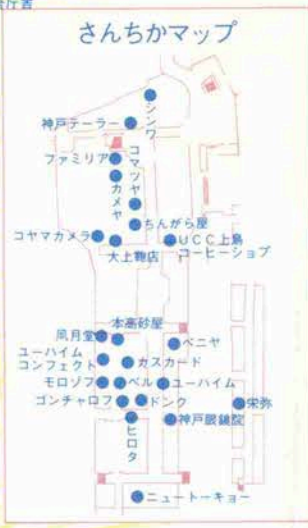 さんちかマップ
シンワ
神戸テーラー
ファミリア
コマツヤ
カメヤ
ちんがら屋
コヤマカメラ
大上鞄店
UCC上島
コーヒーショプ
本高砂屋
風月堂
ベニヤ
ユーハイム
コンフェクト
カスカード
モロゾフ
ベル
ユーハイム
ゴンチャロフ
ドンク
栄弥
ヒロタ
神戸眼鏡院
ニュートーキョー